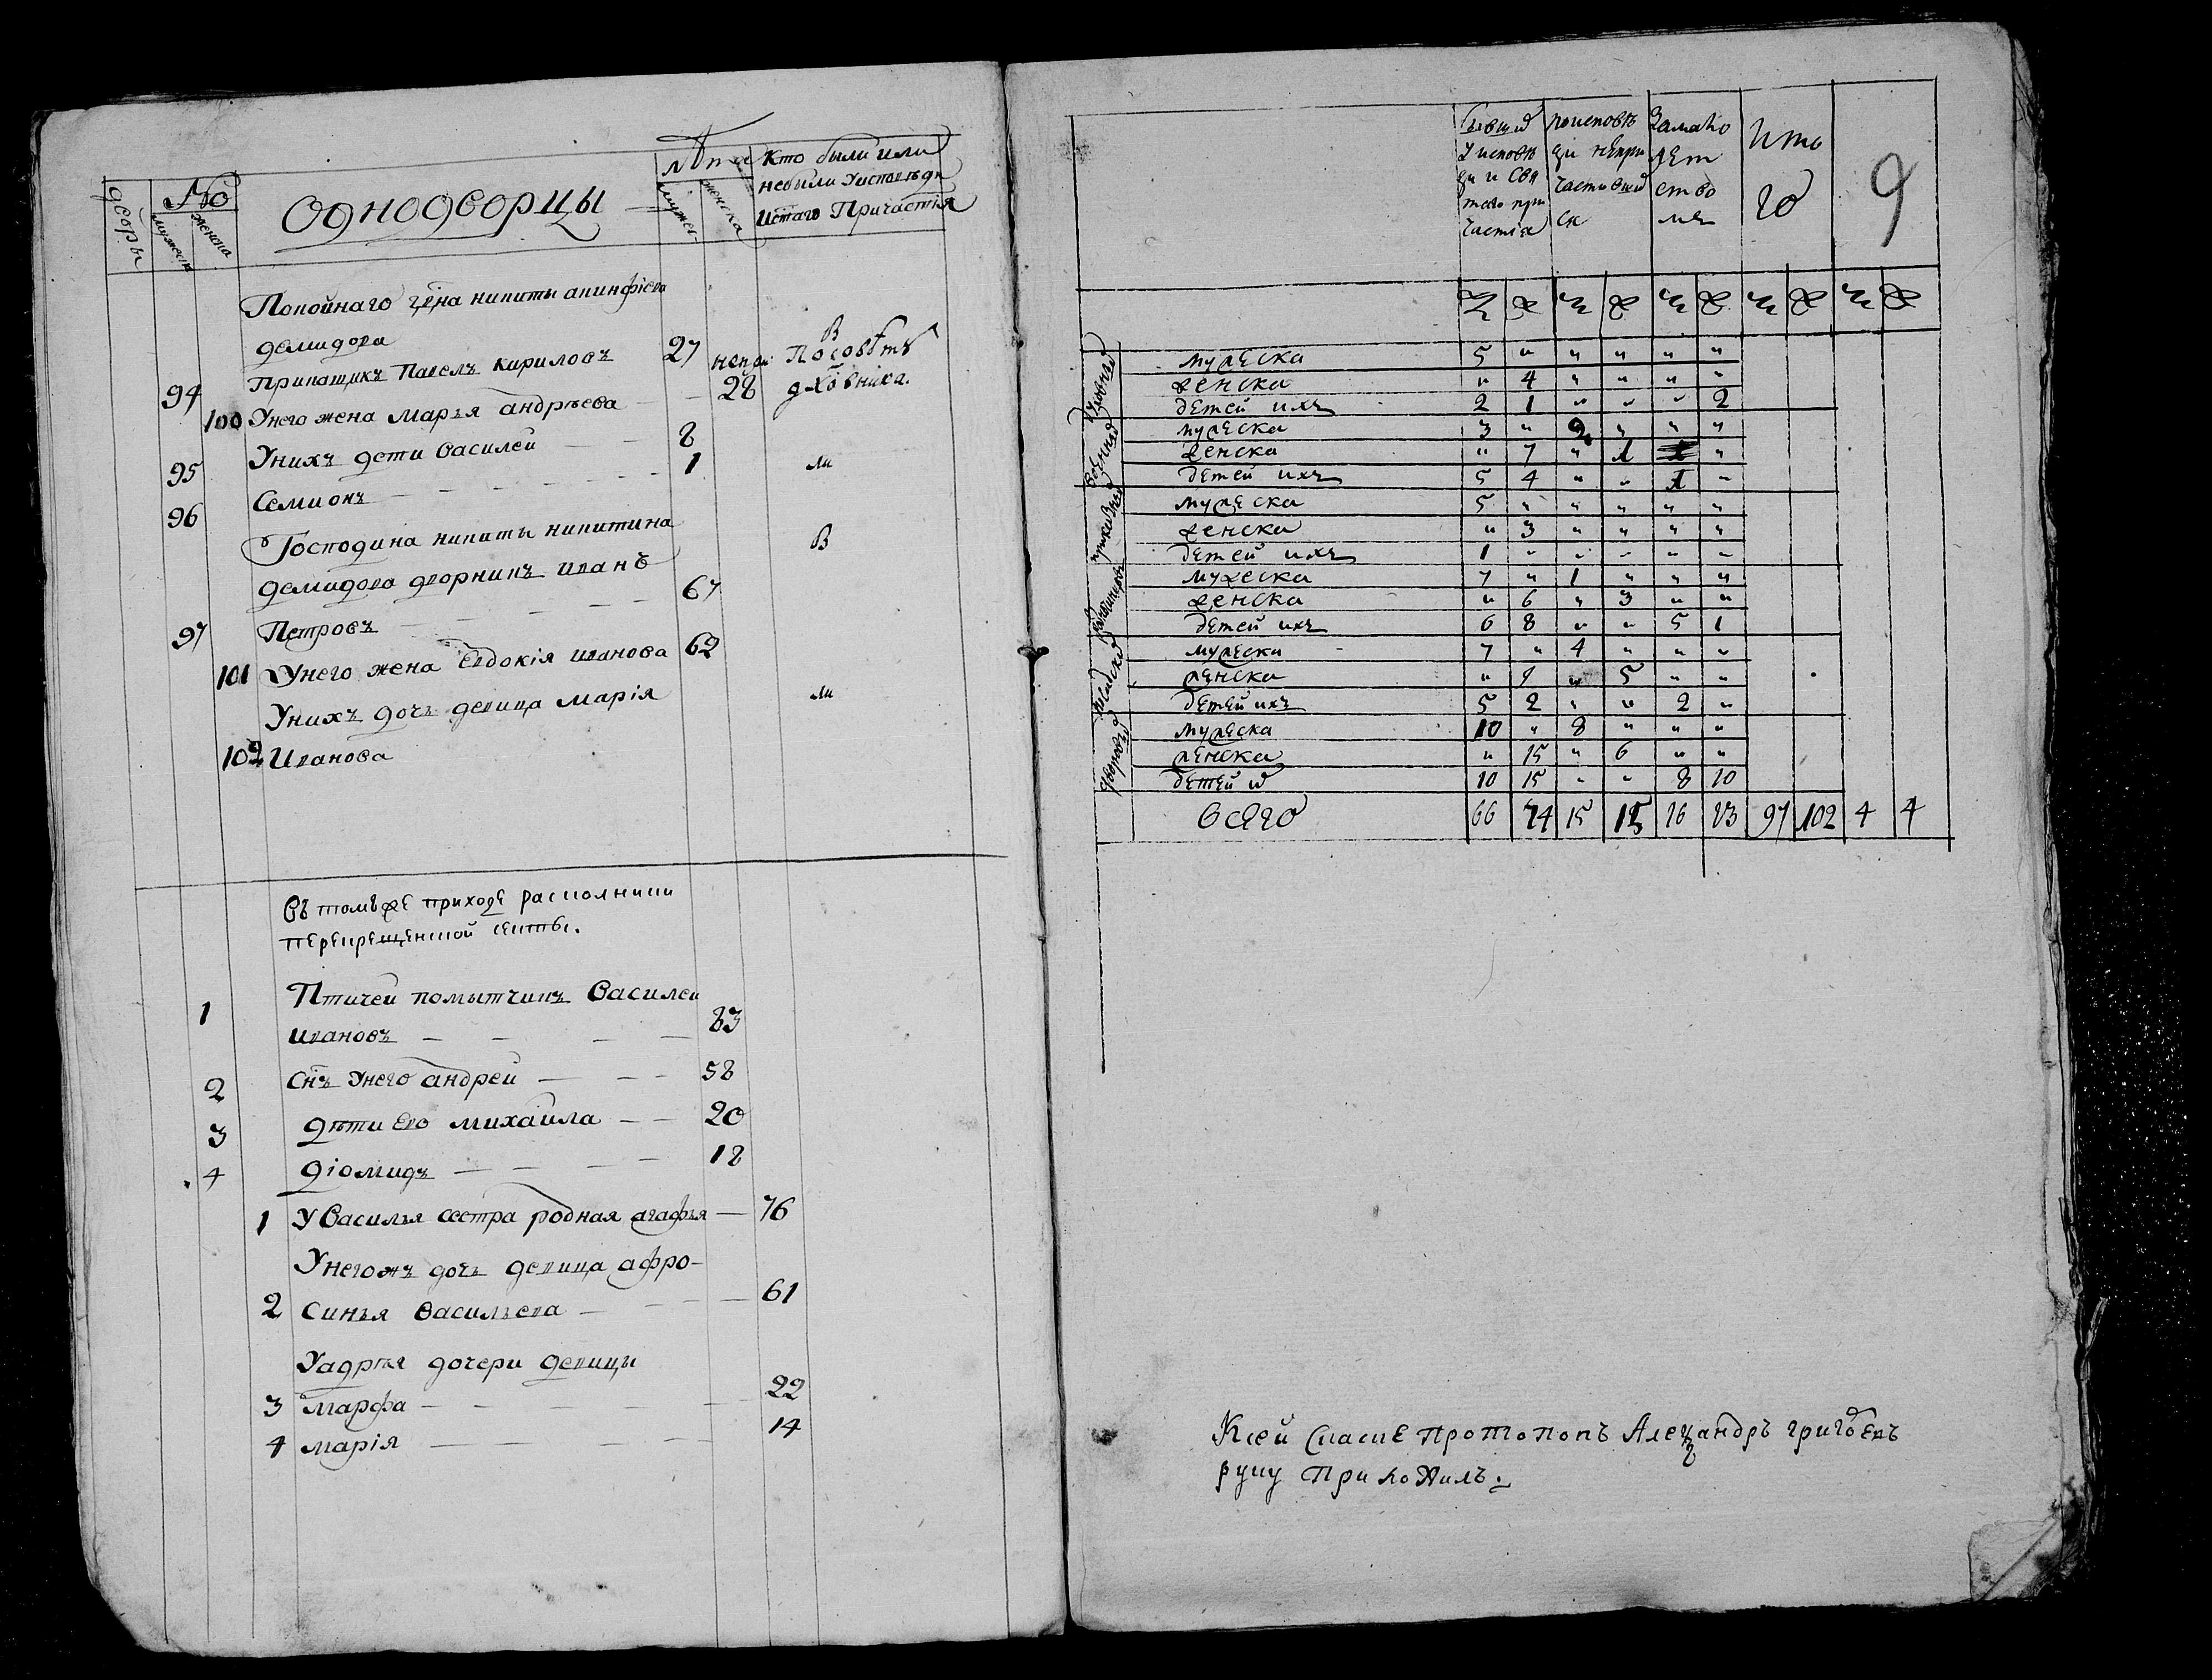 дворы
№
мужеска
женска
Однодворцы
лѣта
мужес
женска
Кто были или
небыли Уисповѣди
Истаго Причастїя
Покойнаго гдна никиты акинфїева
демидова
94 Прикащикъ Павелъ кириловъ 27
В
Посовѣтꙋ
дхо́вника.
100 Унего жена Марья андрѣева 28
95 Унихъ дети Василей 8
96 Семионъ 1 ма
Господина никиты никитина
демидова дворникъ иванъ
97 Петровъ 67 В
101 Унего жена Евдокїя иванова 62
Унихъ дочь девица марїя
102 Иванова ма
Въ томъже приходе расколники
перекрещенской секты.
1 Птичей помытчикъ Василеи
ивановъ 83
2 Снъ Унего андреи 58
3 дѣти Его михаила 20
4 дїомидъ 18
1 У Василья сестра родная агафья 76
Унегожъ дочь девица афро-
2 синья Васильева 61
Уадрѣя дочери девицы
3 марфа 22
4 марїя 14
бывших
У исповѣ
ди и Свя
таго при
частїя
поисповѣ
ди непри
частивших
ся
Замало
лет
ство
мъ
Ито
го
9
мужеска 5 " " " " "
женска " 4 " " " "
детей ихъ 2 1 " " " 2
мужеска 3 " 2 " " "
женска " 7 " 1 "
детей ихъ 5 4 " " 1 "
приказных
мужеска 5 " " " " "
женска " 3 " " " "
детей ихъ 1 " " " " "
мужеска 7 " 1 " " "
женска " 6 " 3 " "
детей ихъ 6 8 " " 5 1
мужеска 7 " 4 " " "
женска " 9 " 5 " "
детей ихъ 5 2 " " 2 "
дворовых
мужеска 10 " 8 " " "
женска " 15 " 6 " "
детей их 10 15 " " 8 20
всего 66 74 15 15 16 23 97 102 4 4
Ксей Сказке протопопъ Алеѯандръ григорьевъ
руку Приложилъ.